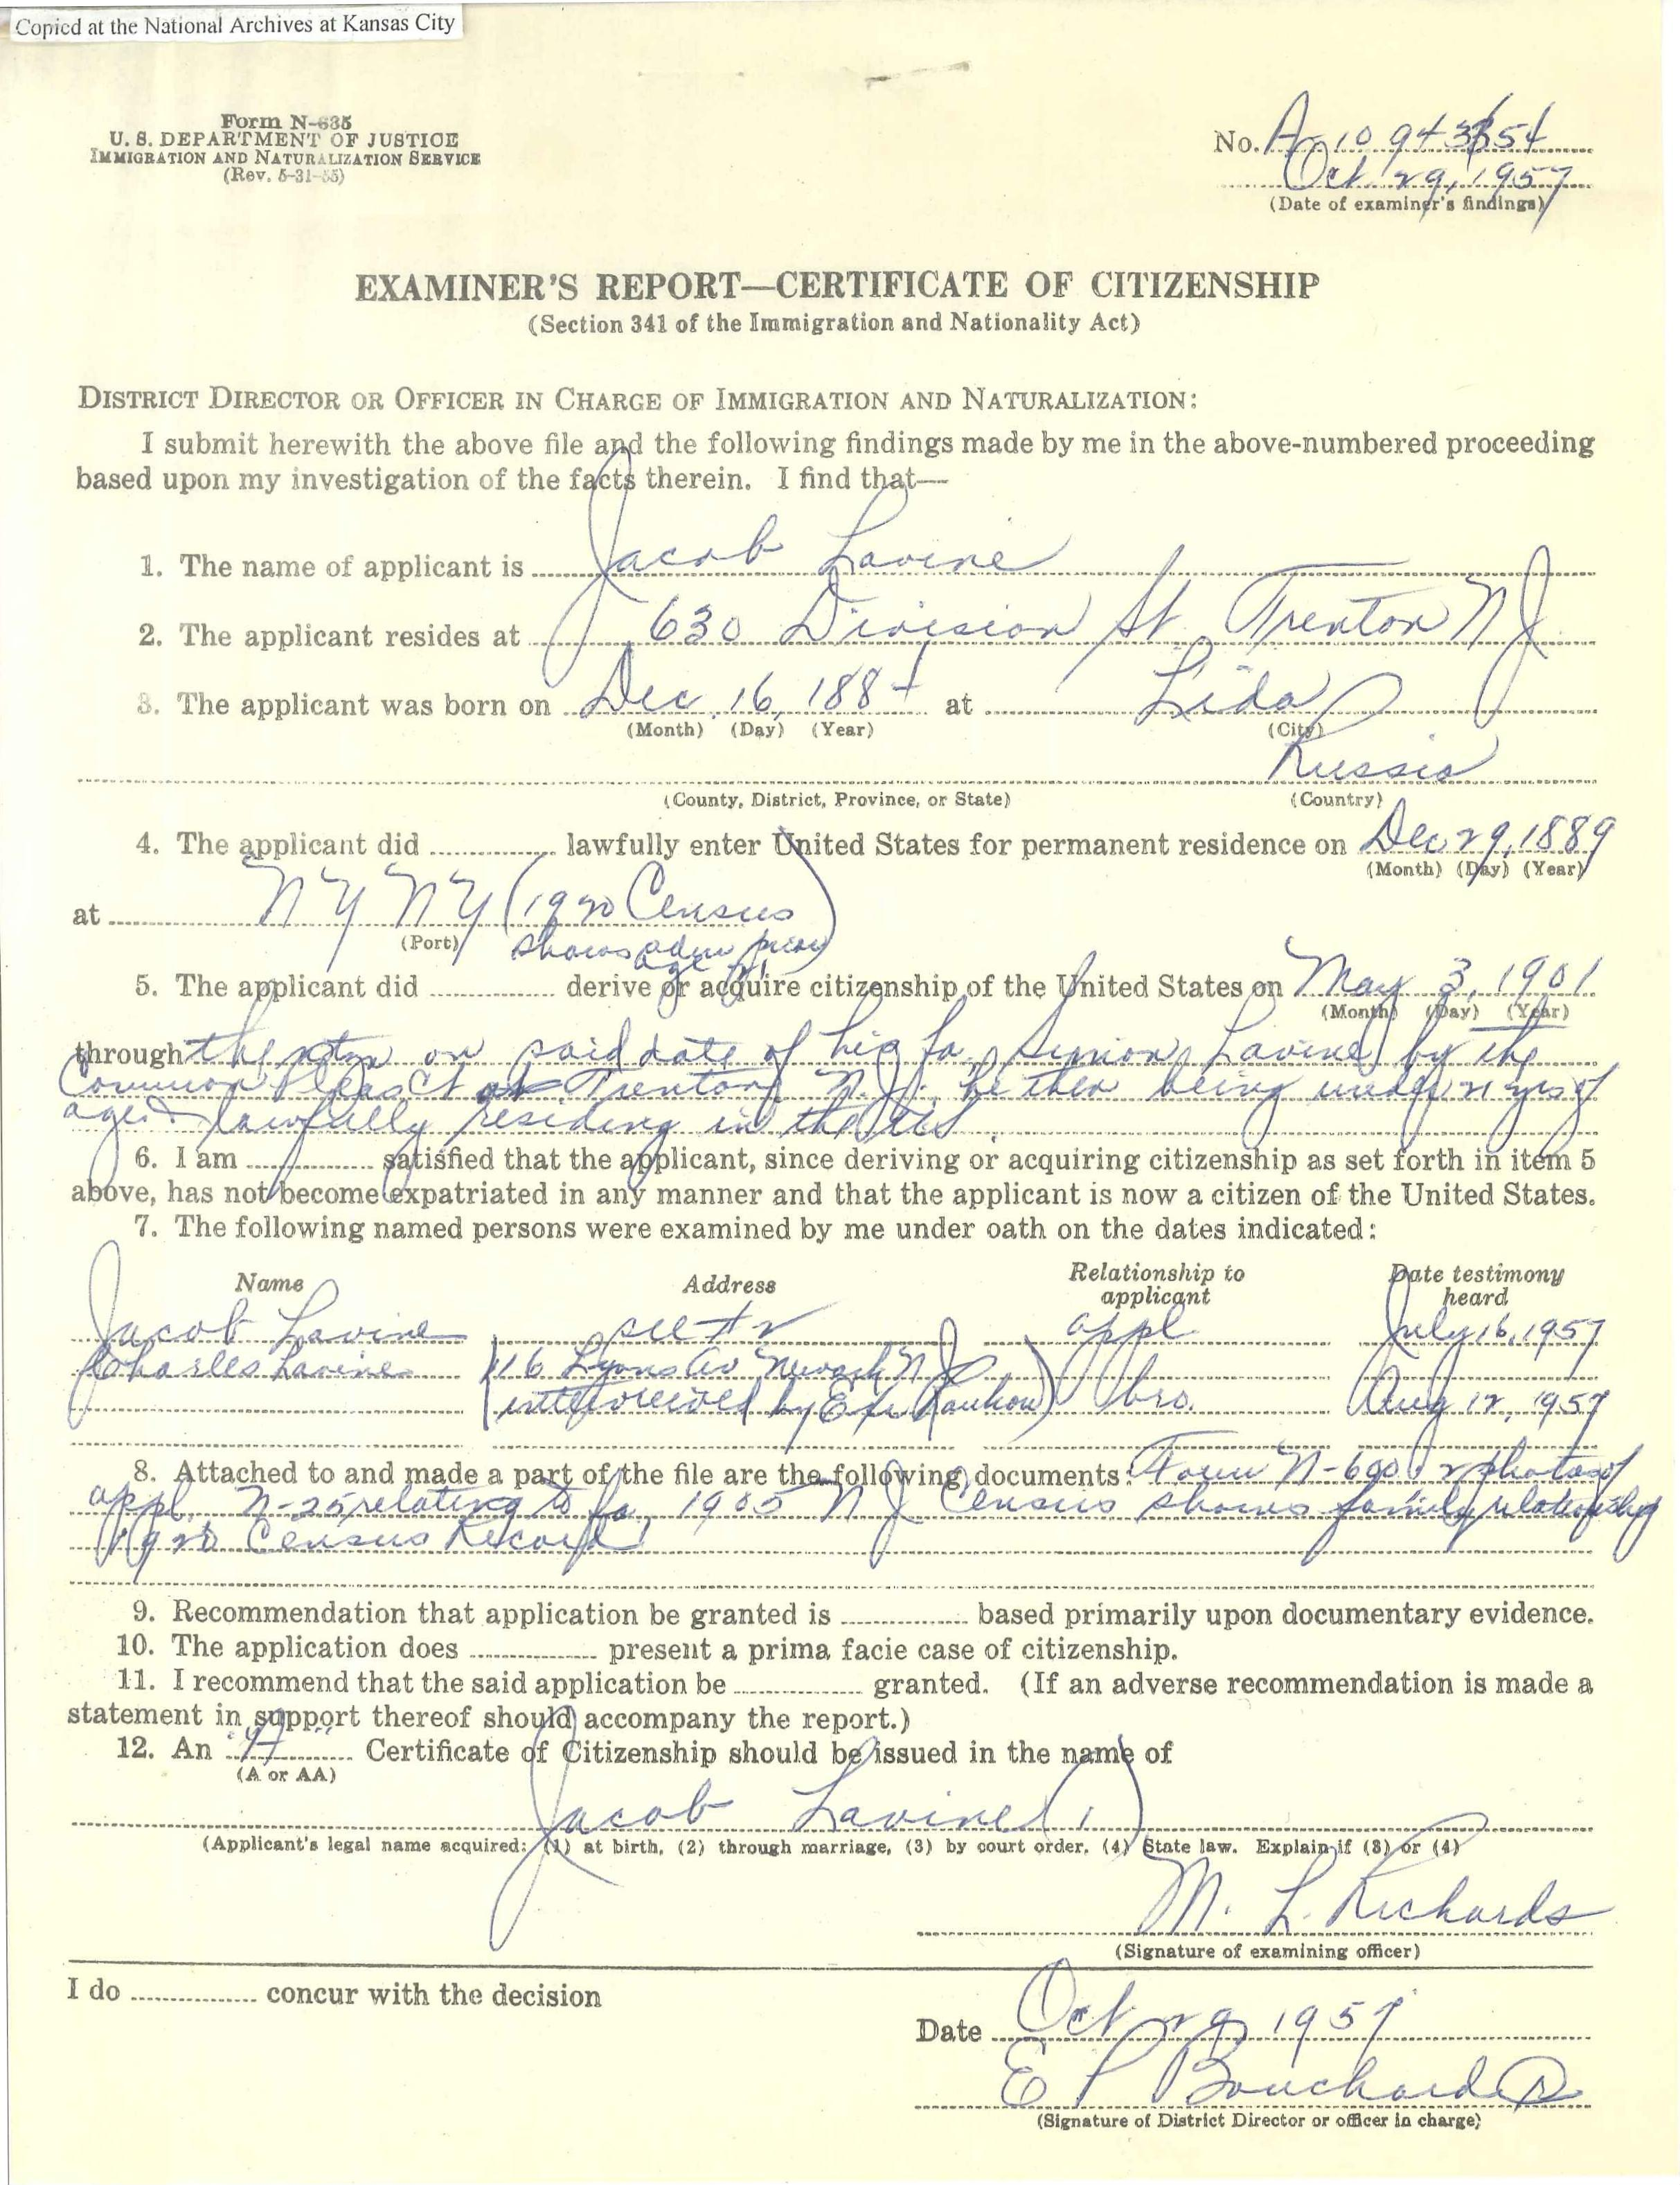 Copied at the National Archives at Kansas City
Form N-635
U. S. DEPARTMENT OF JUSTICE
IMMIGRATION AND NATURALIZATION SERVICE
(Rev. 5-31-55)
No. A 10 943 854
Oct. 29, 1957
(Date of examiner's findings)
EXAMINER'S REPORT—CERTIFICATE OF CITIZENSHIP
(Section 341 of the Immigration and Nationality Act)
DISTRICT DIRECTOR OR OFFICER IN CHARGE OF IMMIGRATION AND NATURALIZATION:
I submit herewith the above file and the following findings made by me in the above-numbered proceeding
based upon my investigation of the facts therein. I find that—
1. The name of applicant is Jacob Lavine
2. The applicant resides at 630 Division St. Trenton NJ
3. The applicant was born on Dec. 16, 1884 at Lida
(Month) (Day) (Year) (City)
Russia
(County, District, Province, or State) (Country)
4. The applicant did lawfully enter United States for permanent residence on Dec 29, 1889
(Month) (Day) (Year)
at NY NY (1920 Census
(Port) shows adm prior
age 21)
5. The applicant did derive or acquire citizenship of the United States on May 3, 1901
(Month) (Day) (Year)
through the natzn on said date of his fa. Simon Lavine by the
Common Pleas Ct Trenton, N.J. he then being under 21 yrs of
age & lawfully residing in the US.
6. I am satisfied that the applicant, since deriving or acquiring citizenship as set forth in item 5
above, has not become expatriated in any manner and that the applicant is now a citizen of the United States.
7. The following named persons were examined by me under oath on the dates indicated:
Name Address Relationship to applicant Date testimony heard
Jacob Lavine see #2 appl. July 16, 1957
Charles Lavine 116 Lyons Av Newark NJ
(interviewed by Ex) bro. Aug 12, 1957
8. Attached to and made a part of the file are the following documents: Form N-600; 2 photos of
appl. N-25 relating to fa, 1905 NJ Census shows family relationship
1920 Census Record
9. Recommendation that application be granted is based primarily upon documentary evidence.
10. The application does present a prima facie case of citizenship.
11. I recommend that the said application be granted. (If an adverse recommendation is made a
statement in support thereof should accompany the report.)
12. An "A" Certificate of Citizenship should be issued in the name of
(A or AA)
Jacob Lavine (1)
(Applicant's legal name acquired: (1) at birth, (2) through marriage, (3) by court order, (4) State law. Explain if (3) or (4)
M. L. Richards
(Signature of examining officer)
I do concur with the decision
Date Oct 29 1957
E P Bouchard
(Signature of District Director or officer in charge)